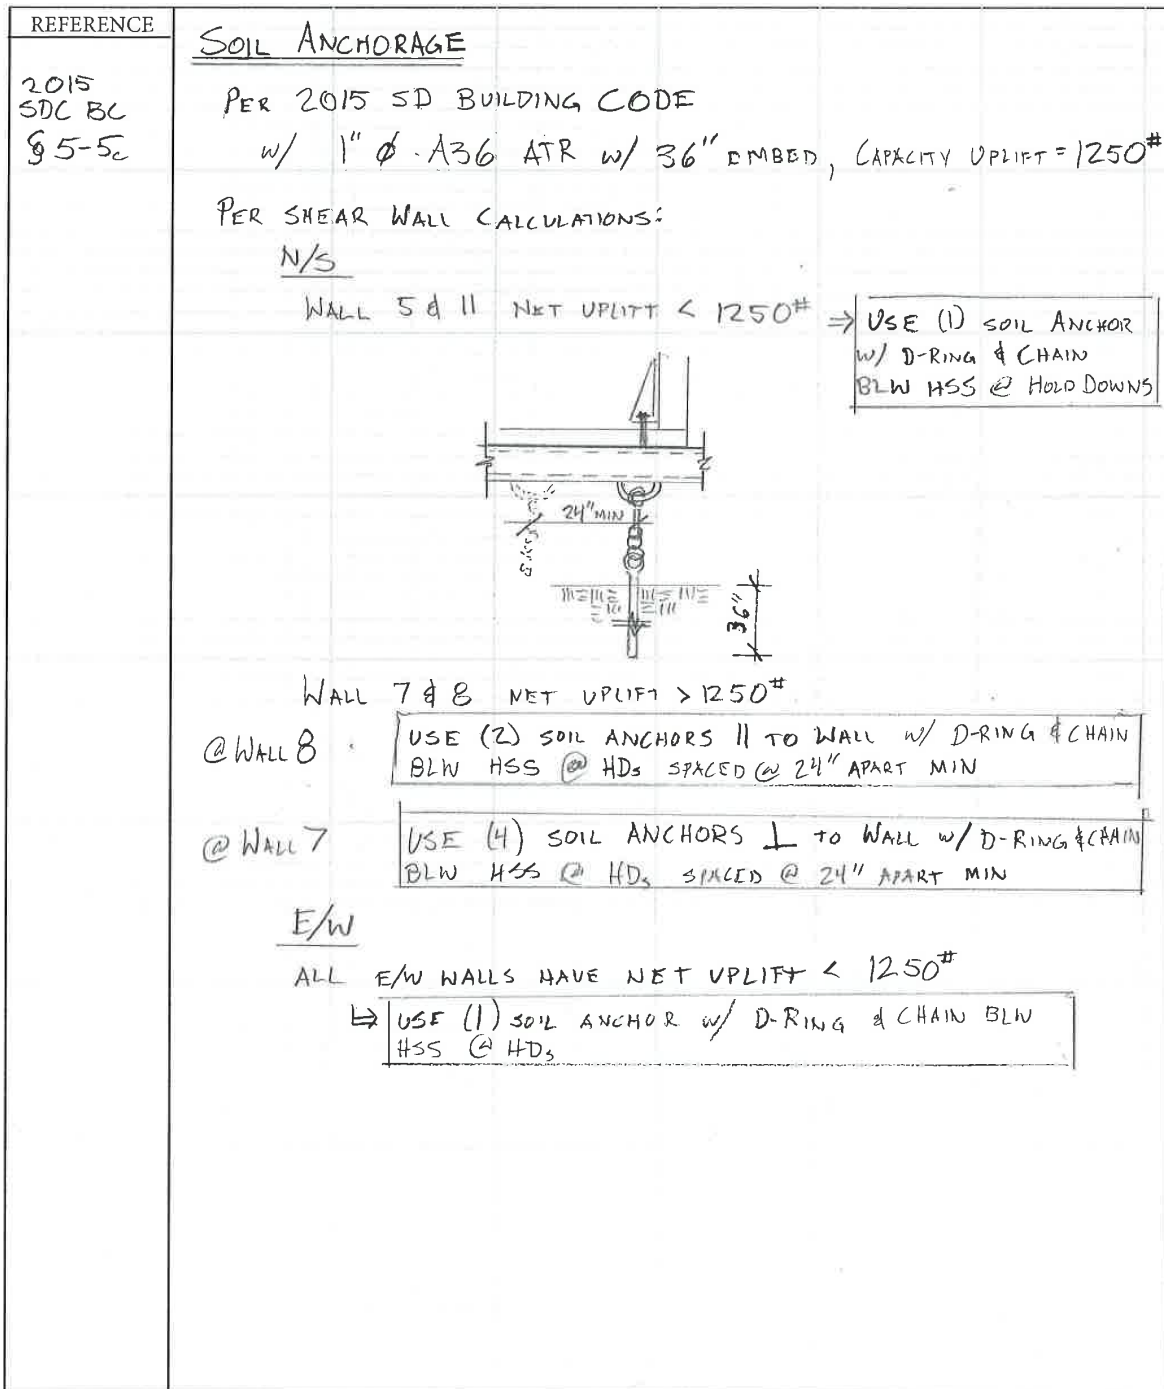 REFERENCE
2015
SDC BC
§ 5-5c
SOIL ANCHORAGE
PER 2015 SD BUILDING CODE
w/ 1" ϕ A36 ATR w/ 36" EMBED, CAPACITY UPLIFT = 1250#
PER SHEAR WALL CALCULATIONS:
N/S
WALL 5 & 11 NET UPLIFT < 1250# ⇒ USE (1) SOIL ANCHOR
w/ D-RING & CHAIN
BLW HSS @ HOLD DOWNS
24" MIN
36"
WALL 7 & 8 NET UPLIFT > 1250#
@ WALL 8 USE (2) SOIL ANCHORS || TO WALL w/ D-RING & CHAIN
BLW HSS @ HDs SPACED @ 24" APART MIN
@ WALL 7 USE (4) SOIL ANCHORS ⊥ TO WALL w/ D-RING & CHAIN
BLW HSS @ HDs SPACED @ 24" APART MIN
E/W
ALL E/W WALLS HAVE NET UPLIFT < 1250#
⇒ USE (1) SOIL ANCHOR w/ D-RING & CHAIN BLW
HSS @ HDs